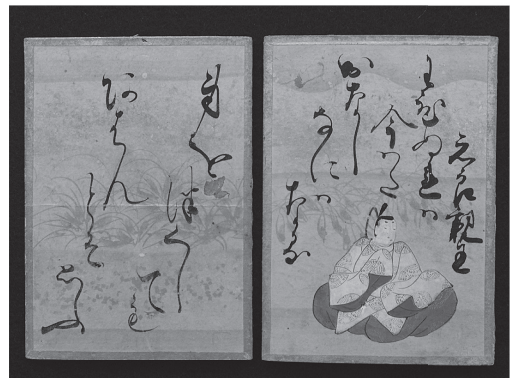 元良親王
わひぬれハ
今はた
おなし
なにハ
なる
身を
つくし
ても
あはん
とそ
おもふ